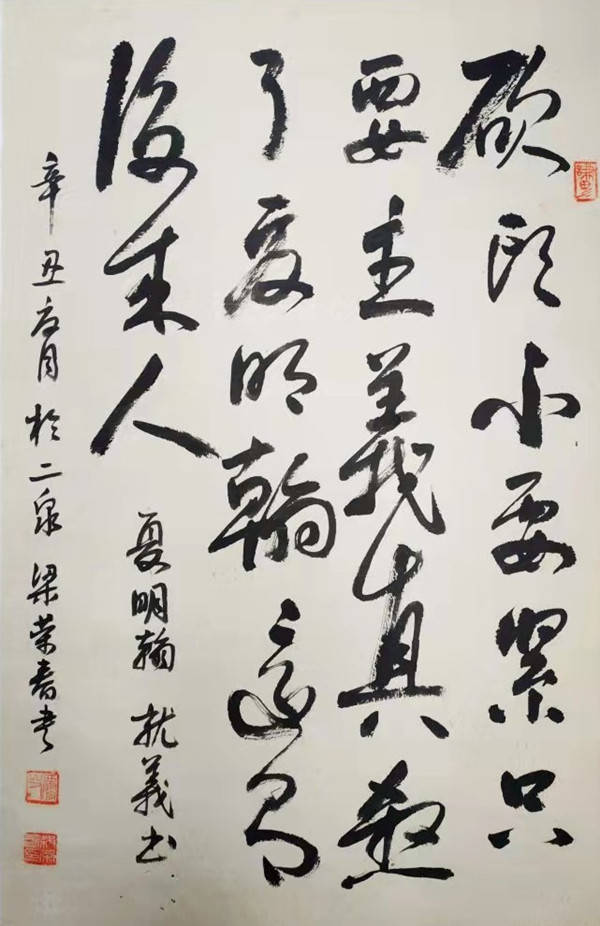 砍頭不要緊只
要主義真殺
了夏明翰還有
後來人
夏明翰就義书
辛丑月於二泉梁荣春书